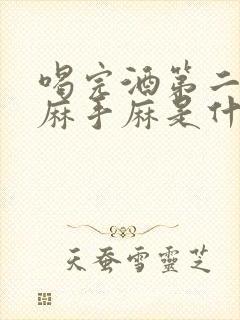 喝完酒第二
麻手麻是什
天蚕雪靈芝